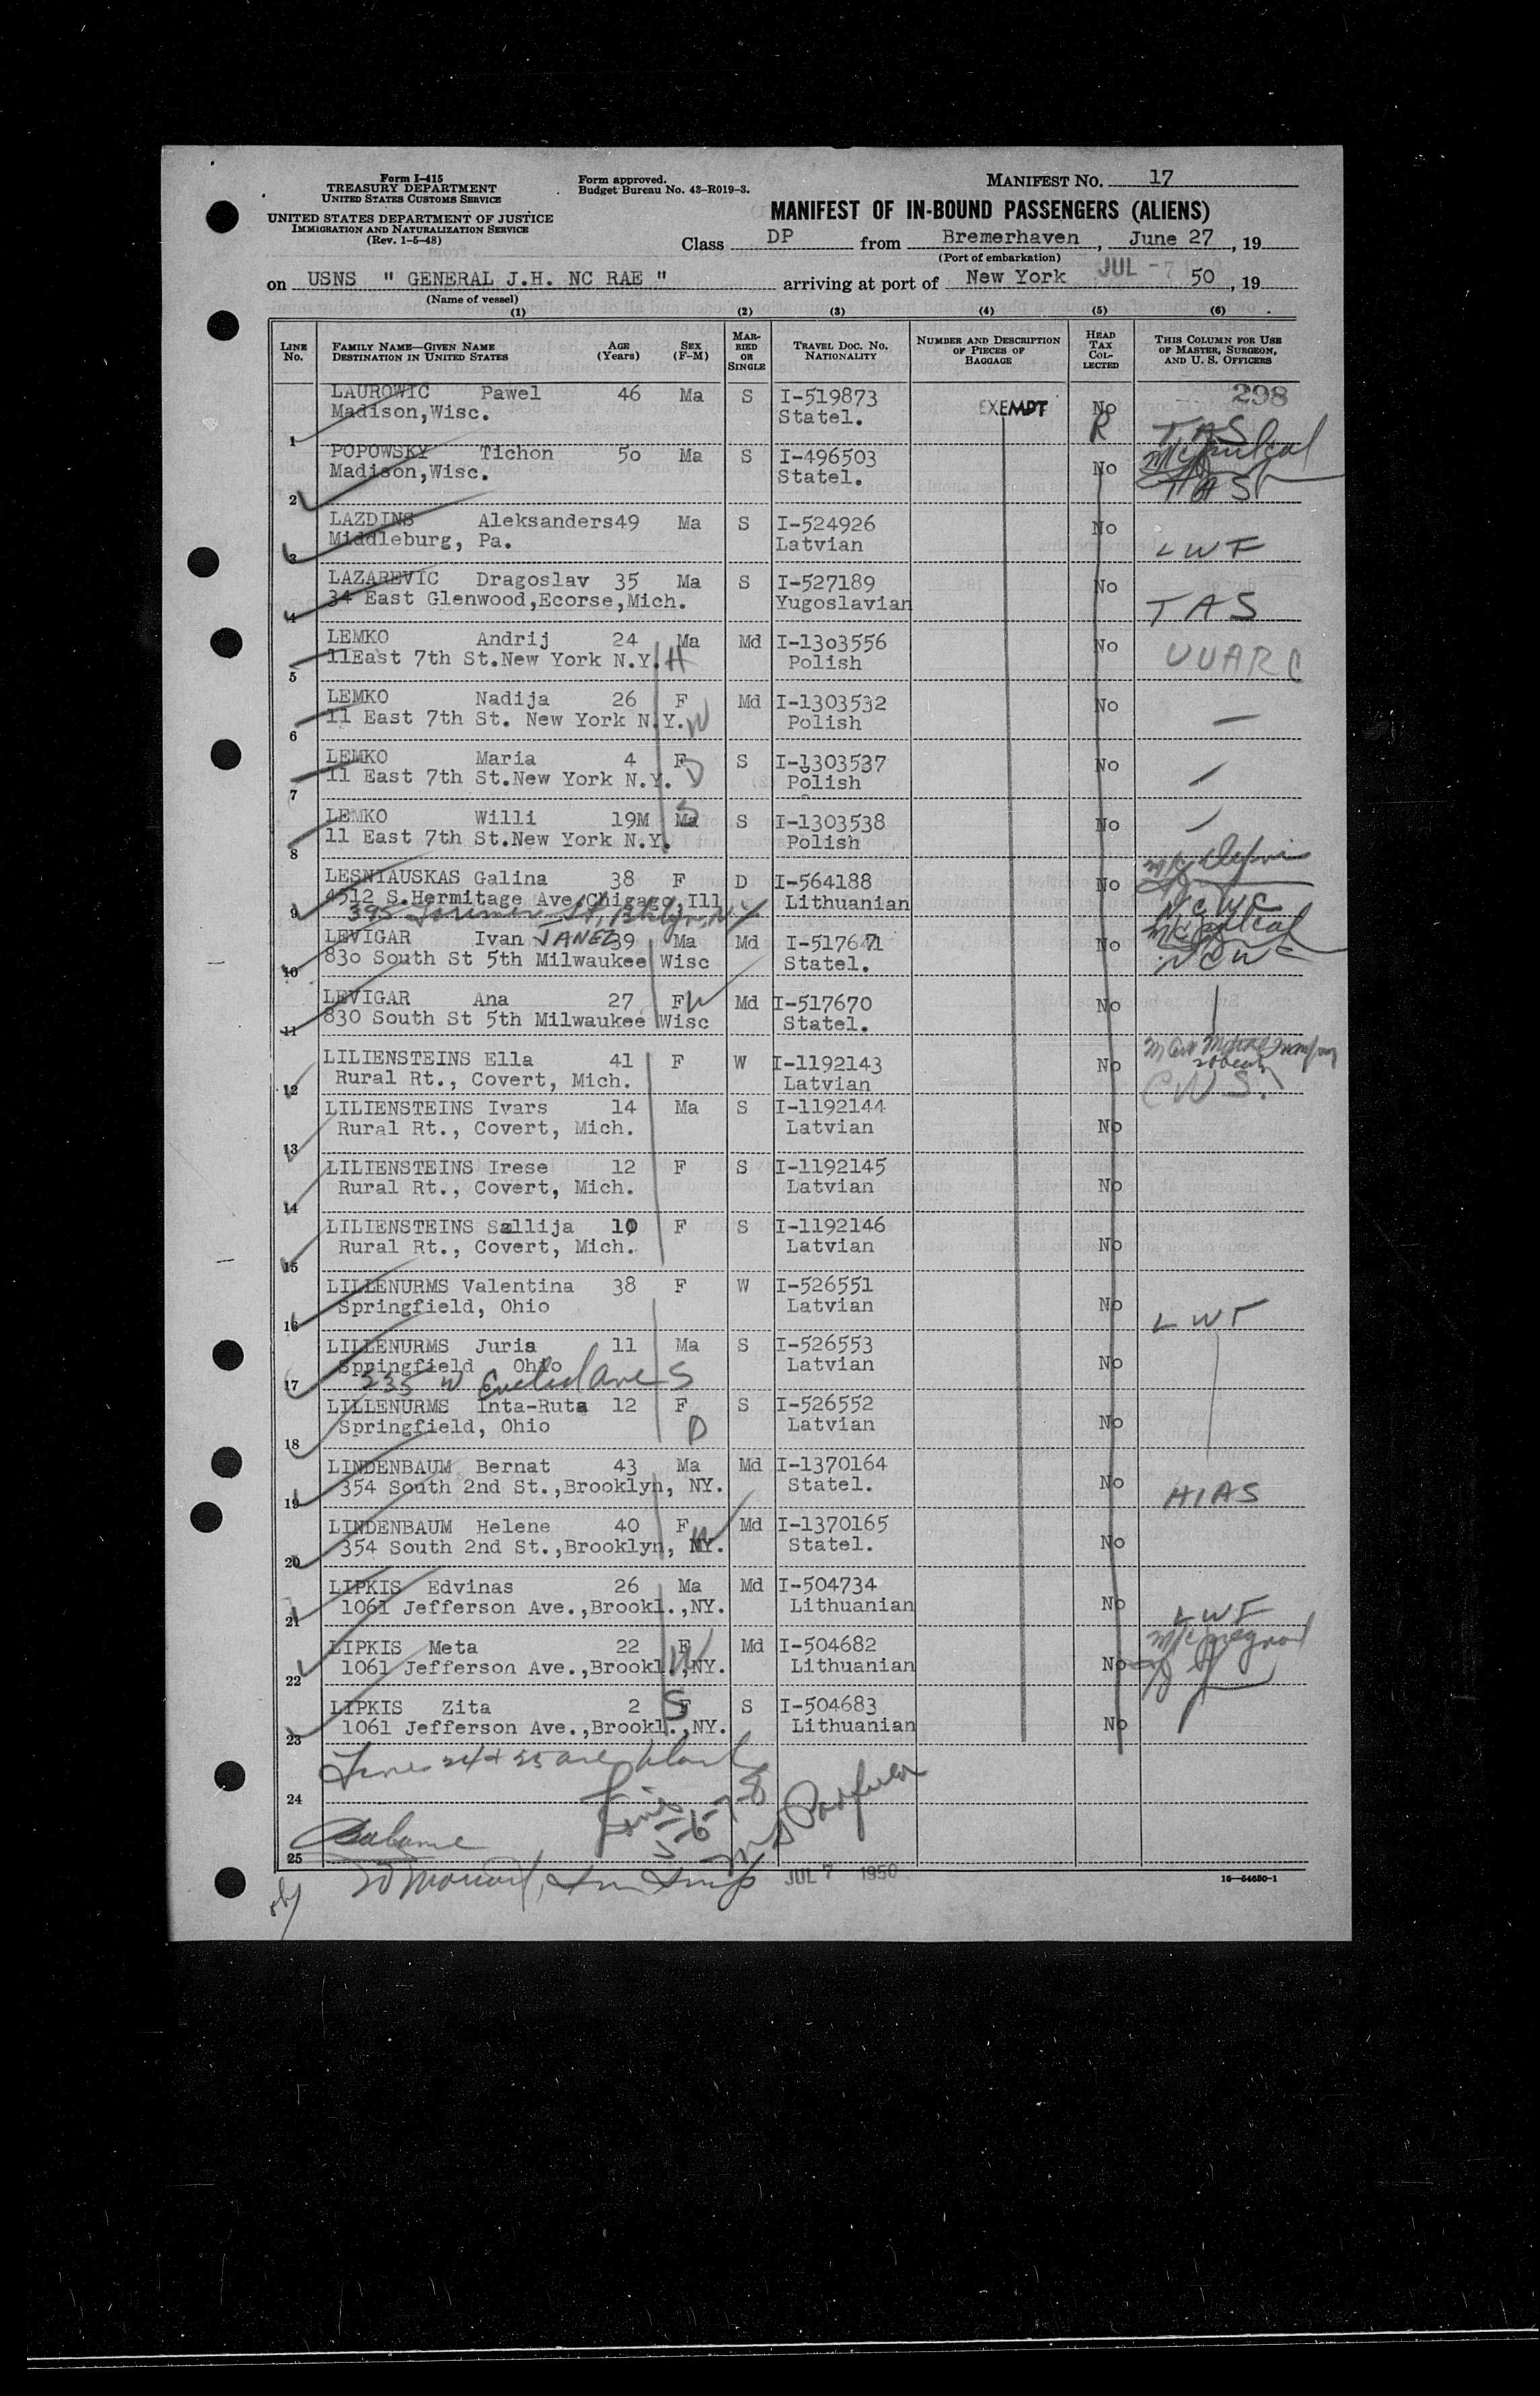 Form I-415
TREASURY DEPARTMENT
UNITED STATES CUSTOMS SERVICE
UNITED STATES DEPARTMENT OF JUSTICE
IMMIGRATION AND NATURALIZATION SERVICE
(Rev. 1-5-48)
Form approved.
Budget Bureau No. 43-R019-3.
MANIFEST NO. 17
MANIFEST OF IN-BOUND PASSENGERS (ALIENS)
Class DP from Bremerhaven, June 27, 19
(Port of embarkation)
on USNS " GENERAL J.H. NC RAE " arriving at port of New York JUL -7 50, 19
(Name of vessel)
(1) (2) (3) (4) (5) (6)
LINE No. FAMILY NAME—GIVEN NAME DESTINATION IN UNITED STATES AGE (Years) SEX (F-M) MARRIED OR SINGLE TRAVEL DOC. NO. NATIONALITY NUMBER AND DESCRIPTION OF PIECES OF BAGGAGE HEAD TAX COLLECTED THIS COLUMN FOR USE OF MASTER, SURGEON, AND U. S. OFFICERS
298
LAUROWIC Pawel 46 Ma S I-519873 EXEMPT No
1 Madison,Wisc. Statel. R TAS
POPOWSKY Tichon 5o Ma S I-496503 No
2 Madison,Wisc. Statel. TAS
LAZDINS Aleksanders49 Ma S I-524926 No
3 Middleburg, Pa. Latvian LWF
LAZAREVIC Dragoslav 35 Ma S I-527189 No
4 34 East Glenwood,Ecorse,Mich. Yugoslavian TAS
LEMKO Andrij 24 Ma Md I-13o3556 No
5 11East 7th St.New York N.Y. H Polish UUARC
LEMKO Nadija 26 F Md I-1303532 No
6 11 East 7th St. New York N.Y. W Polish
LEMKO Maria 4 F S I-1303537 No
7 11 East 7th St.New York N.Y. D Polish
LEMKO Willi 19M Ma S I-1303538 No
8 11 East 7th St.New York N.Y. S Polish
LESNIAUSKAS Galina 38 F D I-564188 No
9 4512 S.Hermitage Ave,Chigago,Ill Lithuanian
395 Lorimer St, Bklyn, N.Y NCWC
LEVIGAR Ivan JANEZ 39 Ma Md I-517671 No
10 83o South St 5th Milwaukee Wisc Statel. NCWC
LEVIGAR Ana 27 F W Md I-517670 No
11 830 South St 5th Milwaukee Wisc Statel.
LILIENSTEINS Ella 41 F W I-1192143 No
12 Rural Rt., Covert, Mich. Latvian CWS.
LILIENSTEINS Ivars 14 Ma S I-1192144
13 Rural Rt., Covert, Mich. Latvian No
LILIENSTEINS Irese 12 F S I-1192145
14 Rural Rt., Covert, Mich. Latvian No
LILIENSTEINS Sallija 10 F S I-1192146
15 Rural Rt., Covert, Mich. Latvian No
LILLENURMS Valentina 38 F W I-526551
16 Springfield, Ohio Latvian No LWF
LILLENURMS Juris 11 Ma S I-526553
17 Springfield Ohio Latvian No
235 W Euclid Ave S
LILLENURMS Inta-Ruta 12 F S I-526552
18 Springfield, Ohio D Latvian No
LINDENBAUM Bernat 43 Ma Md I-1370164
19 354 South 2nd St.,Brooklyn, NY. Statel. No HIAS
LINDENBAUM Helene 40 F W Md I-1370165
20 354 South 2nd St.,Brooklyn, NY. Statel. No
LIPKIS Edvinas 26 Ma Md I-504734
21 1061 Jefferson Ave.,Brookl.,NY. Lithuanian No LWF
LIPKIS Meta 22 F W Md I-504682
22 1061 Jefferson Ave.,Brookl.,NY. Lithuanian No
LIPKIS Zita 2 F S S I-504683
23 1061 Jefferson Ave.,Brookl.,NY. Lithuanian No
Lines 24 + 25 are blank
24
Lines
5-6-7-8
25
JUL 7 1950
16—54650-1